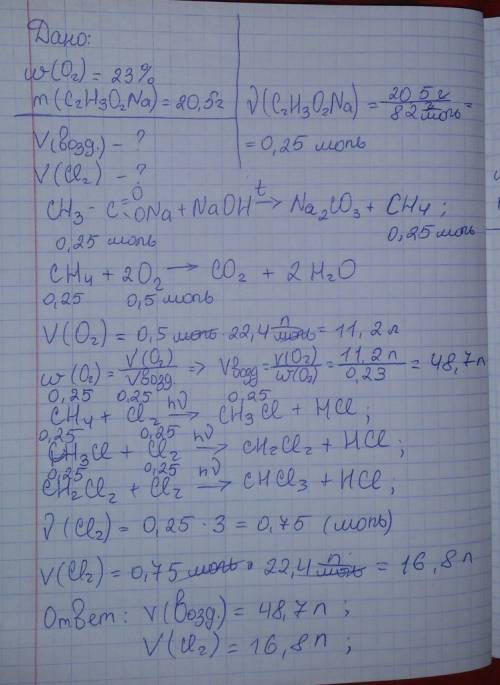 Дано:
w(O₂) = 23%
m(C₂H₃O₂Na) = 20,5г
V(возд.) - ?
V(Cl₂) - ?
ν(C₂H₃O₂Na) = 20,5 г / 82 г/моль =
= 0,25 моль
CH₃ - C =O ONa + NaOH t→ Na₂CO₃ + CH₄ ;
0,25 моль 0,25 моль
CH₄ + 2O₂ → CO₂ + 2H₂O
0,25 0,5 моль
V(O₂) = 0,5 моль · 22,4 л/моль = 11,2 л
w(O₂) = V(O₂)/Vвозд. => Vвозд = V(O₂)/w(O₂) = 11,2 л/0,23 = 48,7л
0,25 0,25 0,25
CH₄ + Cl₂ hν→ CH₃Cl + HCl ;
0,25 0,25
CH₃Cl + Cl₂ hν→ CH₂Cl₂ + HCl ;
0,25 0,25
CH₂Cl₂ + Cl₂ hν→ CHCl₃ + HCl ;
ν(Cl₂) = 0,25 · 3 = 0,75 (моль)
V(Cl₂) = 0,75 моль · 22,4 л/моль = 16,8 л
Ответ: V(возд.) = 48,7 л ;
V(Cl₂) = 16,8 л ;